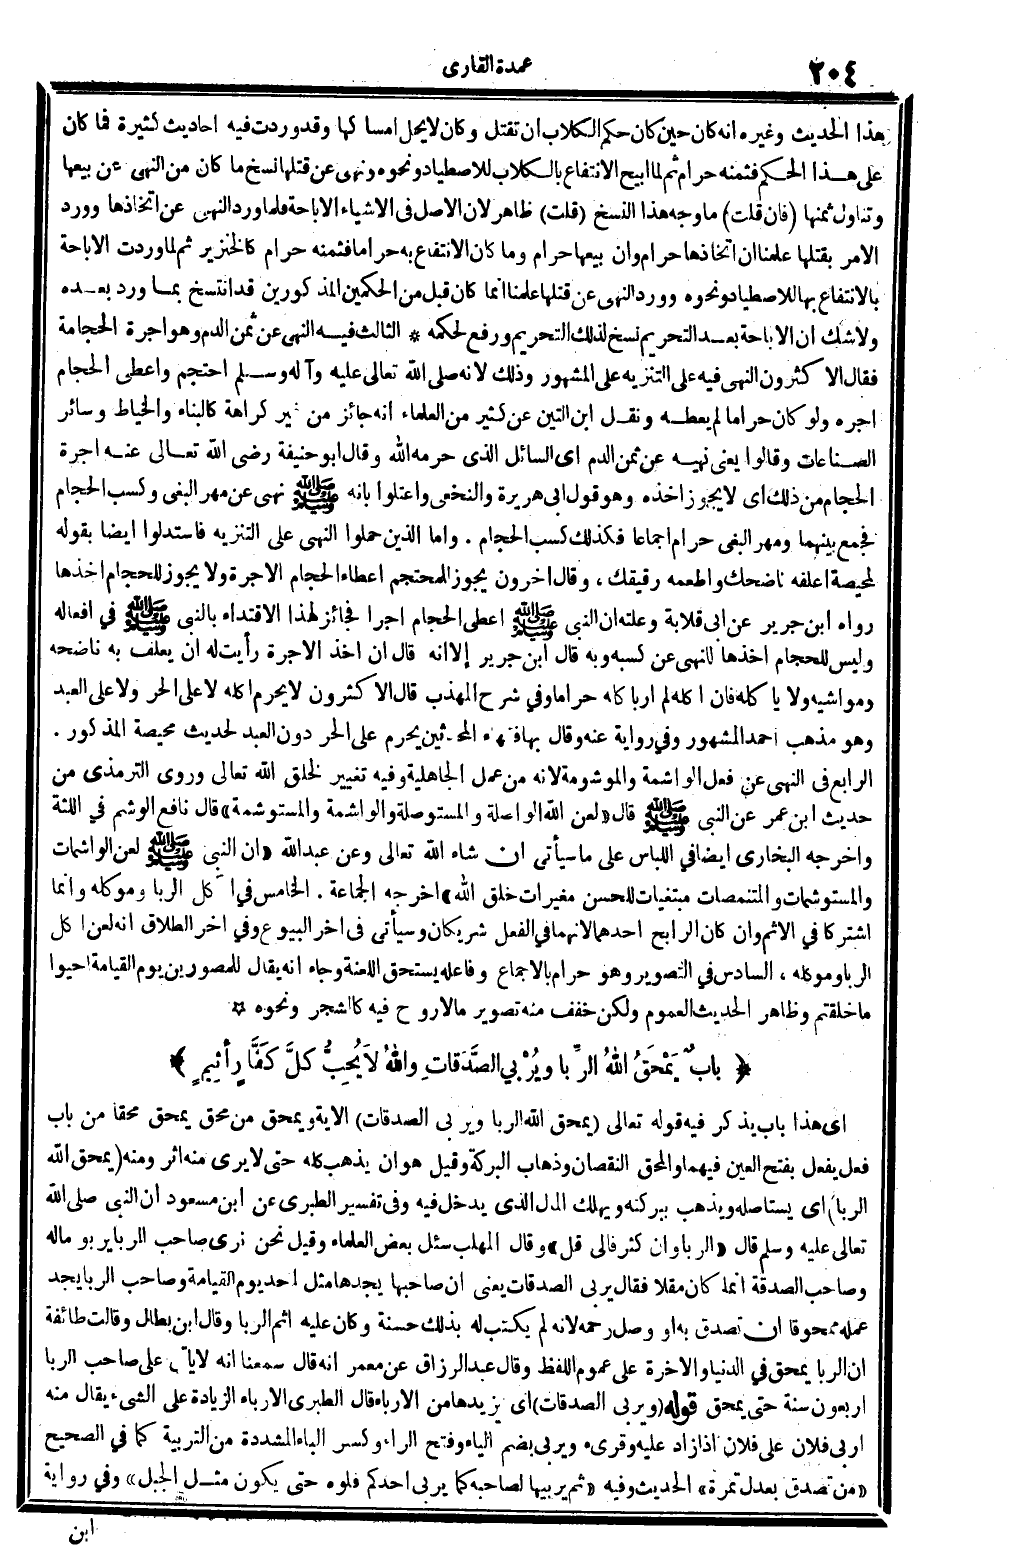 ٢٠٤
عمدة القارى
هذا الحديث وغيره انه كان حين كان حكم الكلاب ان تقتل وكان لا يحل امساكها وقد وردت فيه احاديث كثيرة فما كان
على هذا الحكم فثمنه حرام ثم لما ابيح الانتفاع بالكلاب للاصطياد ونحوه ونهى عن قتلها نسخ ما كان من النهى عن بيعها
وتناول ثمنها (فان قلت) ما وجه هذا النسخ (قلت) ظاهر لان الاصل فى الاشياء الاباحة فلما ورد النهى عن اتخاذها وورد
الامر بقتلها علمنا ان اتخاذها حرام وان بيعها حرام وما كان الانتفاع به حراما فثمنه حرام كالخنزير ثم لما وردت الاباحة
بالانتفاع بها للاصطياد ونحوه وورد النهى عن قتلها علمنا انما كان قبل من الحكمين المذكورين قد انتسخ بما ورد بعده
ولاشك ان الاباحة بعد التحريم نسخ لذلك التحريم ورفع لحكمه * الثالث فيه النهى عن ثمن الدم وهو اجرة الحجامة
فقال الاكثرون النهى فيه على التنزيه على المشهور وذلك لانه صلى الله تعالى عليه وآله وسلم احتجم واعطى الحجام
اجره ولو كان حراما لم يعطه ونقل ابن التين عن كثير من العلماء انه جائز من غير كراهة كالبناء والخياط وسائر
الصناعات وقالوا يعنى نهيه عن ثمن الدم اى السائل الذى حرمه الله وقال ابو حنيفة رضى الله تعالى عنه اجرة
الحجام من ذلك اى لا يجوز اخذه وهو قول ابى هريرة والنخعى واعتلوا بانه ﷺ نهى عن مهر البغى وكسب الحجام
فجمع بينهما ومهر البغى حرام اجماعا فكذلك كسب الحجام . واما الذين حملوا النهى على التنزيه فاستدلوا ايضا بقوله
لمحيصة اعلفه ناضحك واطعمه رقيقك ، وقال اخرون يجوز للمحتجم اعطاء الحجام الاجرة ولا يجوز للحجام اخذها
رواه ابن جرير عن ابى قلابة وعلته ان النبى ﷺ اعطى الحجام اجرا فجائز لهذا الاقتداء بالنبى ﷺ في افعاله
وليس للحجام اخذها للنهى عن كسبه وبه قال ابن جرير إلا انه قال ان اخذ الاجرة رأيت له ان يعلف به ناضحه
ومواشيه ولا ياكله فان اكله لم ار باكله حراما وفي شرح المهذب قال الاكثرون لا يحرم اكله لا على الحر ولا على العبد
وهو مذهب احمد المشهور وفي رواية عنه وقال بها فقهاء المحدثين يحرم على الحر دون العبد لحديث محيصة المذكور .
الرابع فى النهى عن فعل الواشمة والموشومة لانه من عمل الجاهلية وفيه تغيير لخلق الله تعالى وروى الترمذى من
حديث ابن عمر عن النبى ﷺ قال «لعن الله الواصلة والمستوصلة والواشمة والمستوشمة» قال نافع الوشم في اللثة
واخرجه البخارى ايضا في اللباس على ما سيأتى ان شاء الله تعالى وعن عبد الله «ان النبى ﷺ لعن الواشمات
والمستوشمات والمتنمصات مبتغيات للحسن مغيرات خلق الله» اخرجه الجماعة . الخامس في اكل الربا وموكله وانما
اشتركا في الاثم وان كان الرابح احدهما لانهما في الفعل شريكان وسيأتى فى اخر البيوع وفي اخر الطلاق انه لعن اكل
الربا وموكله ، السادس في التصوير وهو حرام بالاجماع وفاعله يستحق اللعنة وجاء انه يقال للمصورين يوم القيامة احيوا
ما خلقتم وظاهر الحديث العموم ولكن خفف منه تصوير ما لا روح فيه كالشجر ونحوه ☆
﴿ بابٌ يَمْحَقُ اللهُ الرِّبا ويُرْبي الصَّدَقاتِ واللهُ لاَ يُحِبُّ كلَّ كَفَّارٍ أثِيمٍ ﴾
اى هذا باب يذكر فيه قوله تعالى (يمحق الله الربا ويربى الصدقات) الاية ويمحق من محق يمحق محقا من باب
فعل يفعل بفتح العين فيهما والمحق النقصان وذهاب البركة وقيل هو ان يذهب كله حتى لا يرى منه اثر ومنه (يمحق الله
الربا) اى يستاصله ويذهب ببركته ويهلك المال الذى يدخل فيه وفى تفسير الطبرى عن ابن مسعود ان النبى صلى الله
تعالى عليه وسلم قال «الربا وان كثر فالى قل» وقال المهلب سئل بعض العلماء وقيل نحن نرى صاحب الربا يربو ماله
وصاحب الصدقة انما كان مقلا فقال يربى الصدقات يعنى ان صاحبها يجدها مثل احد يوم القيامة وصاحب الربا يجد
عمله ممحوقا ان تصدق به او وصل رحمه لانه لم يكتب له بذلك حسنة وكان عليه اثم الربا وقال ابن بطال وقالت طائفة
ان الربا يمحق في الدنيا والاخرة على عموم اللفظ وقال عبد الرزاق عن معمر انه قال سمعنا انه لا ياتى على صاحب الربا
اربعون سنة حتى يمحق قوله (ويربى الصدقات) اى يزيدها من الارباء قال الطبرى الارباء الزيادة على الشىء يقال منه
اربى فلان على فلان اذا زاد عليه وقرىء ويربى بضم الياء وفتح الراء وكسر الباء المشددة من التربية كما في الصحيح
«من تصدق بعدل تمرة» الحديث وفيه «ثم يربيها لصاحبه كما يربى احدكم فلوه حتى يكون مثل الجبل» وفي رواية
ابن